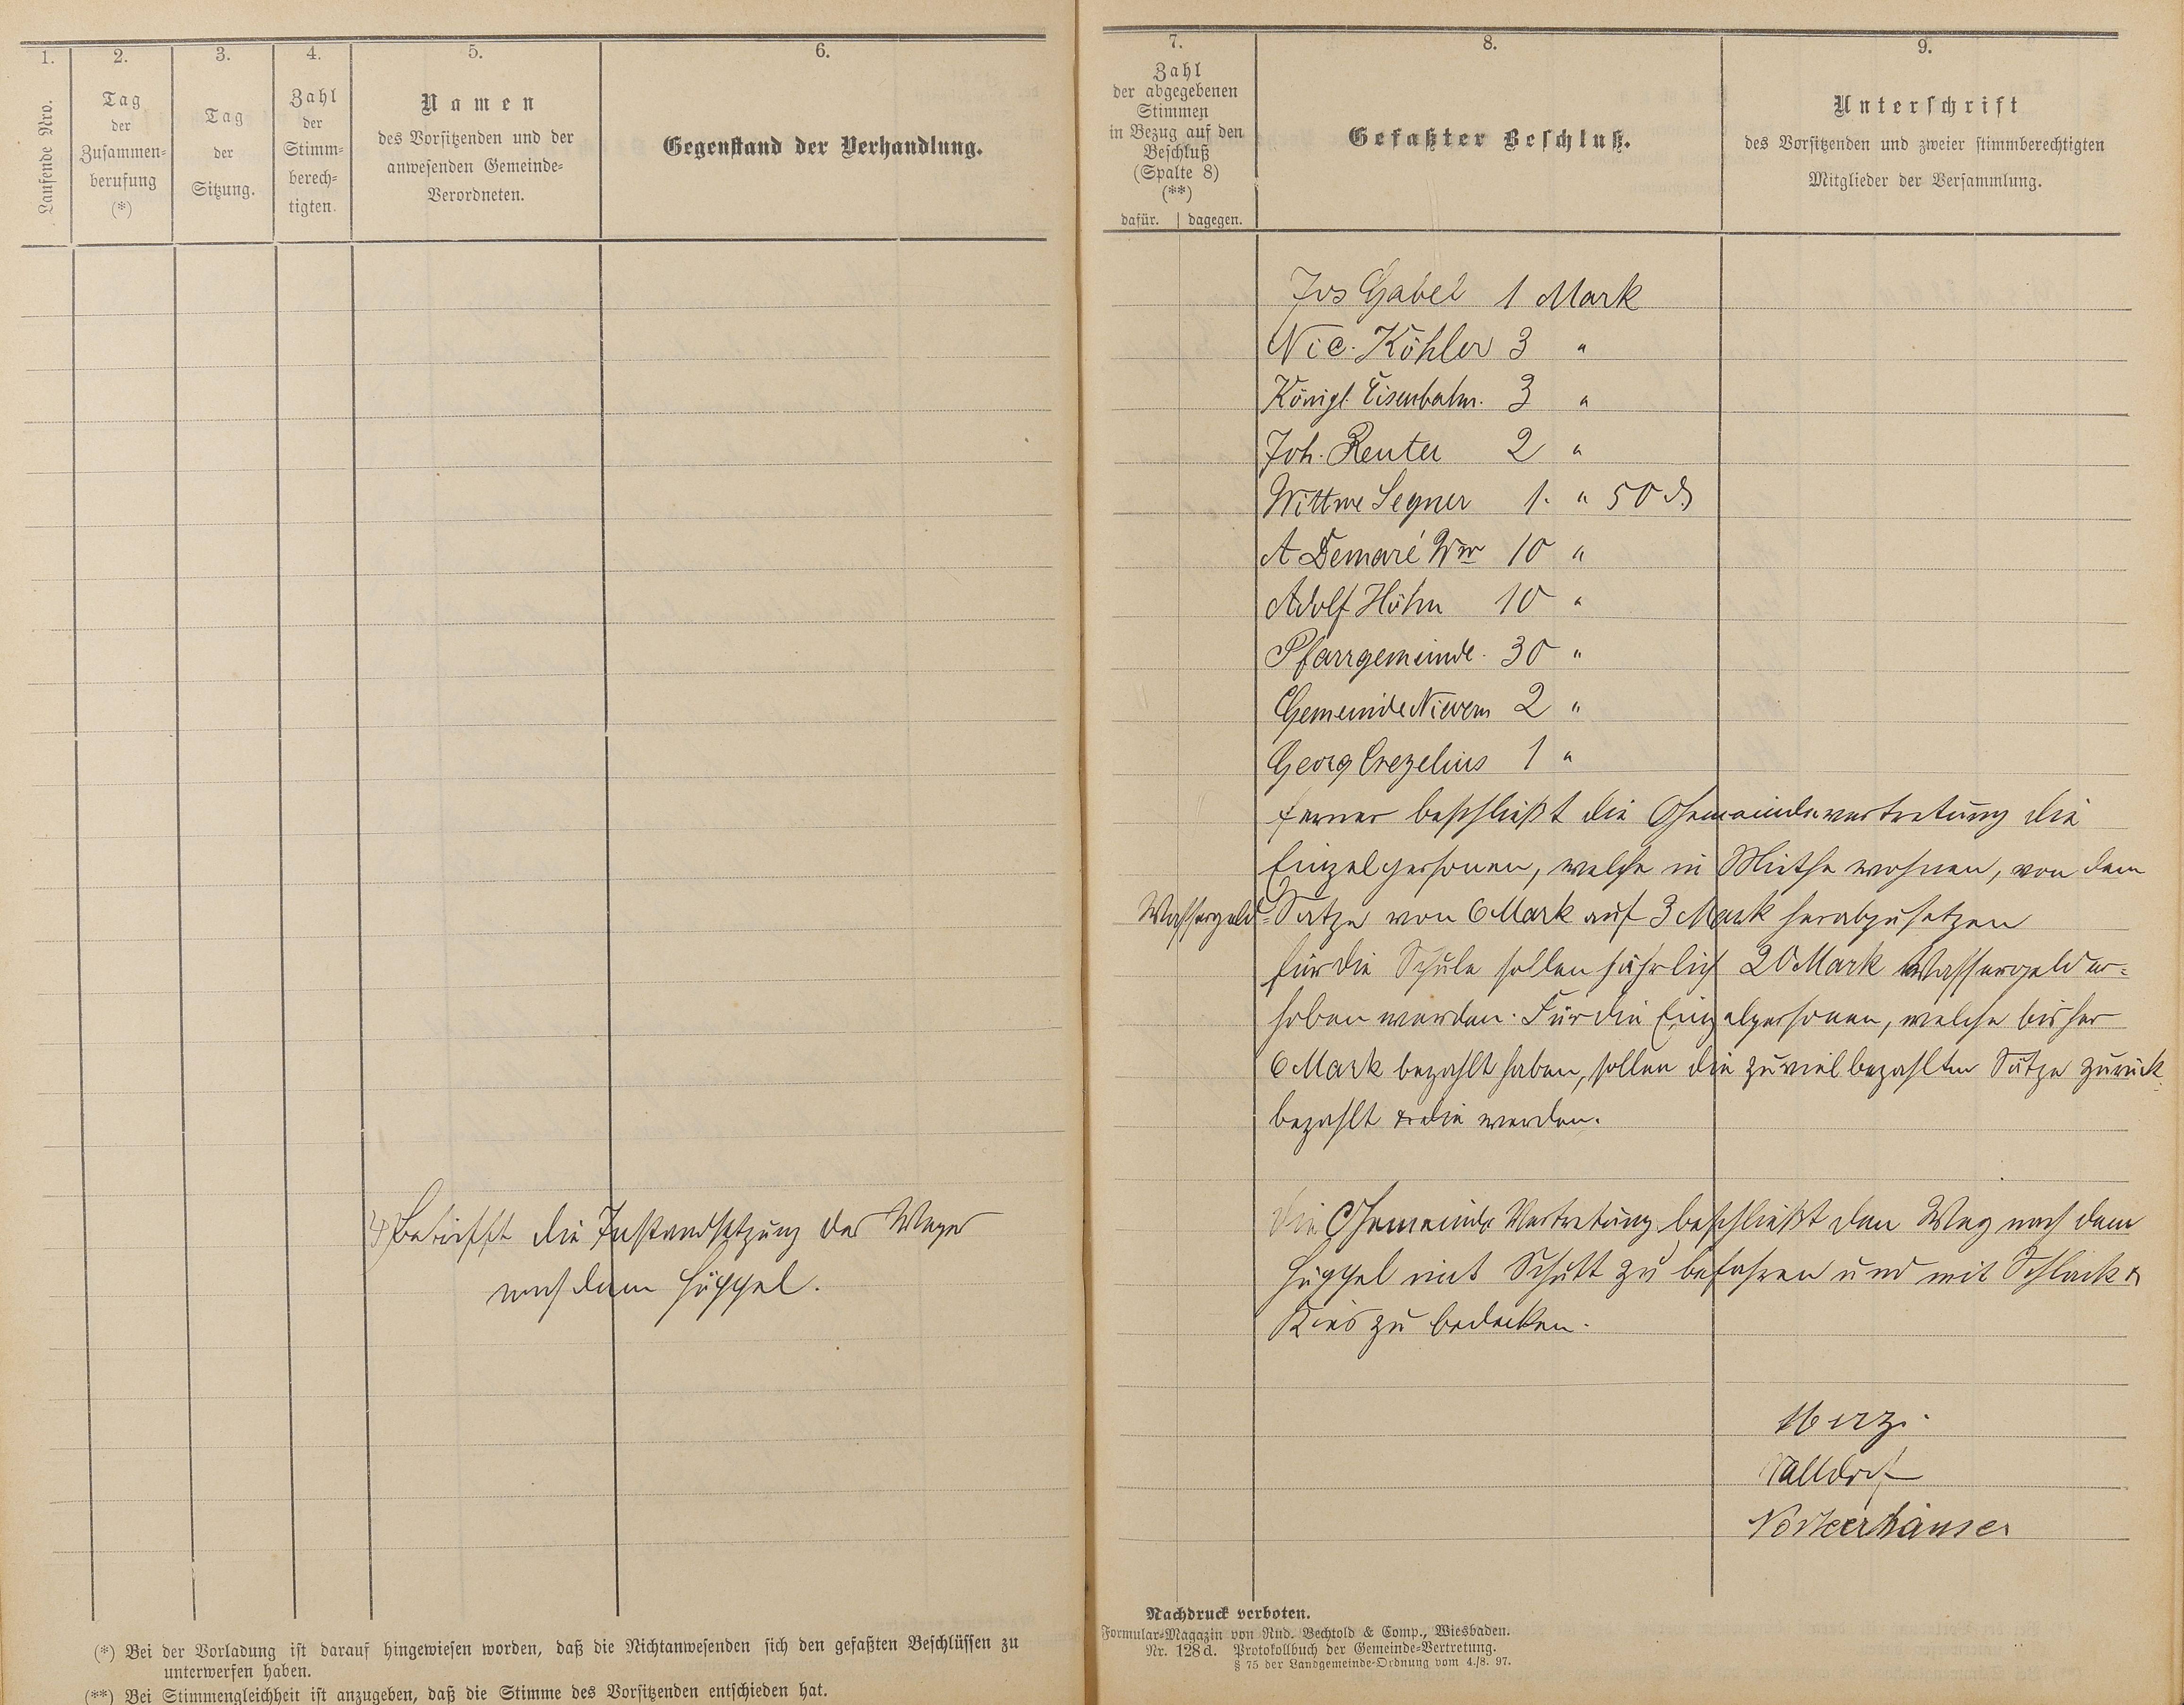 1.
Laufende Nro.
2.
Tag
der
Zusammen-
berufung
(*)
3.
Tag
der
Sitzung.
4.
Zahl
der
Stimm-
berech-
tigten.
5.
Namen
des Vorsitzenden und der
anwesenden Gemeinde-
Verordneten.
6.
Gegenstand der Verhandlung.
4) Betrifft die Instandsetzung des Weges
nach dem Hüppel.
(*) Bei der Vorladung ist darauf hingewiesen worden, daß die Nichtanwesenden sich den gefaßten Beschlüssen zu
unterwerfen haben.
(**) Bei Stimmengleichheit ist anzugeben, daß die Stimme des Vorsitzenden entschieden hat.
7.
Zahl
der abgegebenen
Stimmen
in Bezug auf den
Beschluß
(Spalte 8)
(**)
dafür. | dagegen.
8.
Gefaßter Beschluß.
9.
Unterschrift
des Vorsitzenden und zweier stimmberechtigten
Mitglieder der Versammlung.
Jos Gabel 1 Mark
Nic. Köhler 3 "
Königl. Eisenbahn. 3 "
Joh. Reuter 2 "
Wittwe Segner 1. " 50 ₰
A Demaré Ww 10 "
Adolf Höhn 10 "
Pfarrgemeinde 30 "
Gemeinde Nievern 2 "
Georg Crezelius 1 "
ferner beschließt die Gemeindevertretung die
Einzelpersonen, welche in Miethe wohnen, von dem
Wassergeld-Satze von 6 Mark auf 3 Mark herabzusetzen
für die Schule sollen jährlich 20 Mark Wassergeld er-
hoben werden. Für die Einzelpersonen, welche bisher
6 Mark bezahlt haben, sollen die zuviel bezahlten Sätze zurück-
bezahlt werden.
Die Gemeinde Vertretung beschließt den Weg nach dem
Hüppel mit Schutt zu befahren und mit Schlack &
Kies zu bedecken.
Herz.
Salldorf
Nörtershäuser
Nachdruck verboten.
Formular-Magazin von Rud. Bechtold & Comp., Wiesbaden.
Nr. 128d. Protokollbuch der Gemeinde-Vertretung.
§ 75 der Landgemeinde-Ordnung vom 4./8. 97.